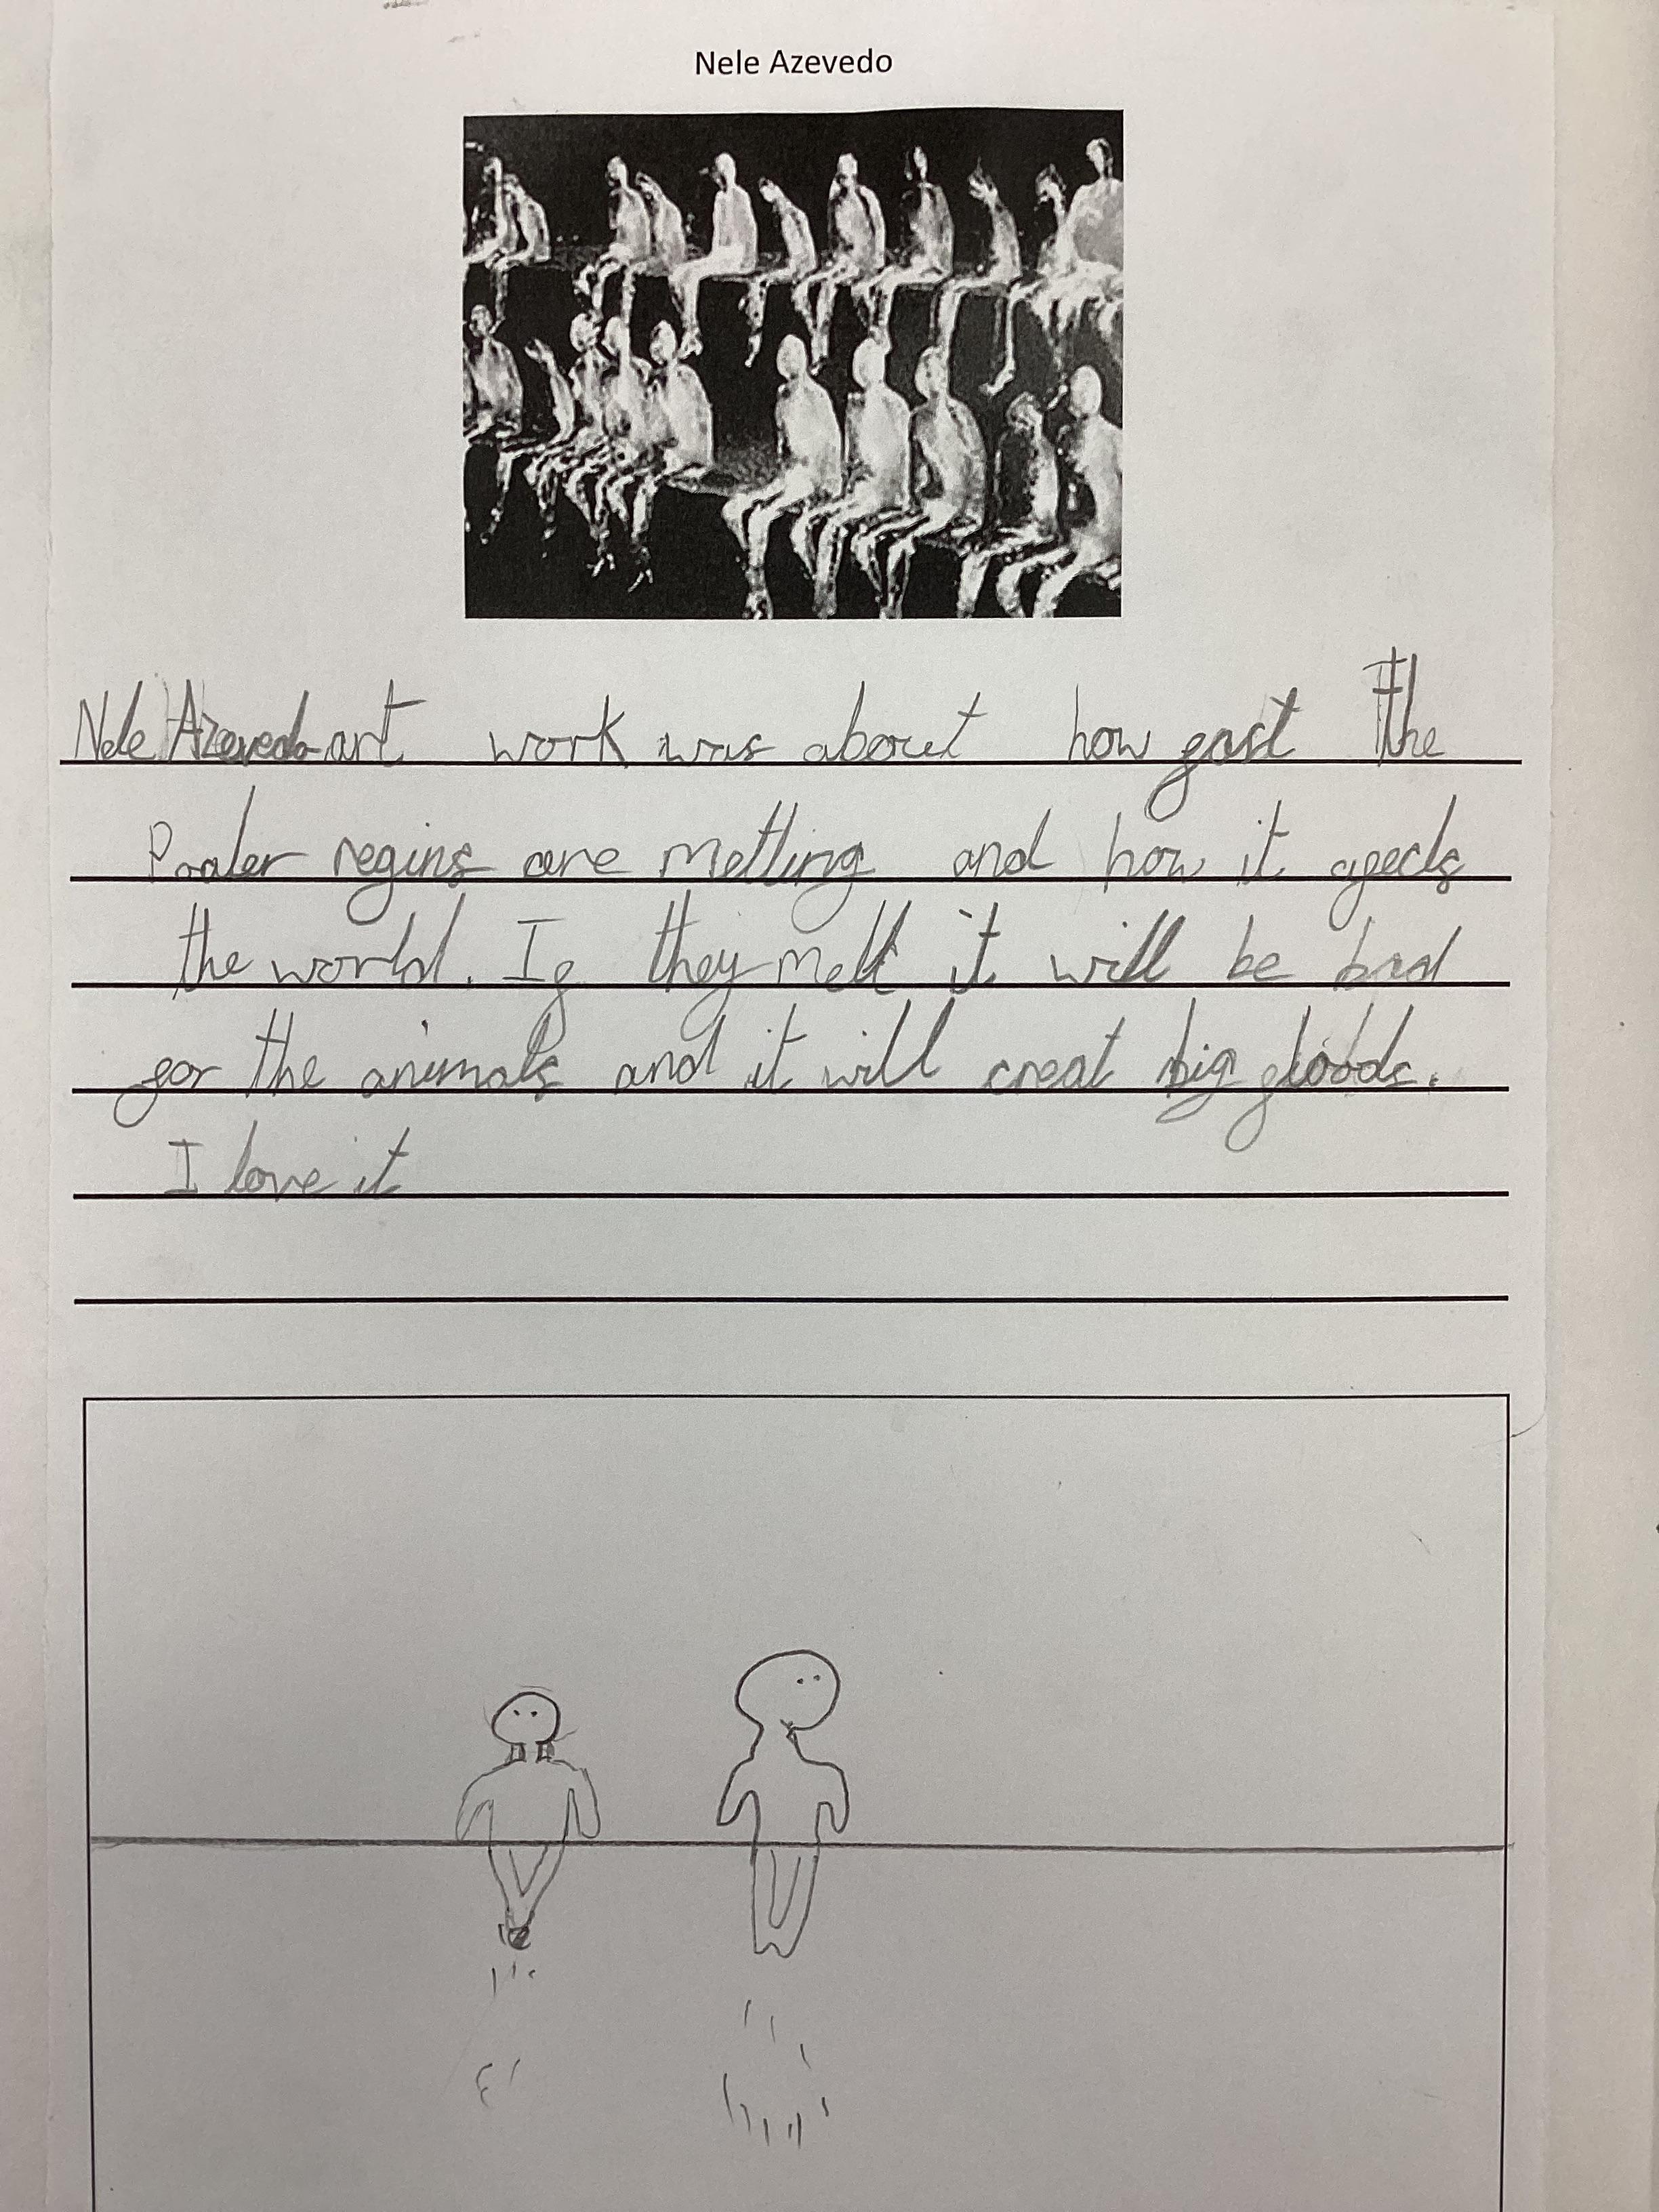 Nele Azevedo
Nele Azevedo art work was about how fast the
Poaler regins are melting and how it afects
the world. If they melt it will be bad
for the animals and it will creat big floods.
I love it